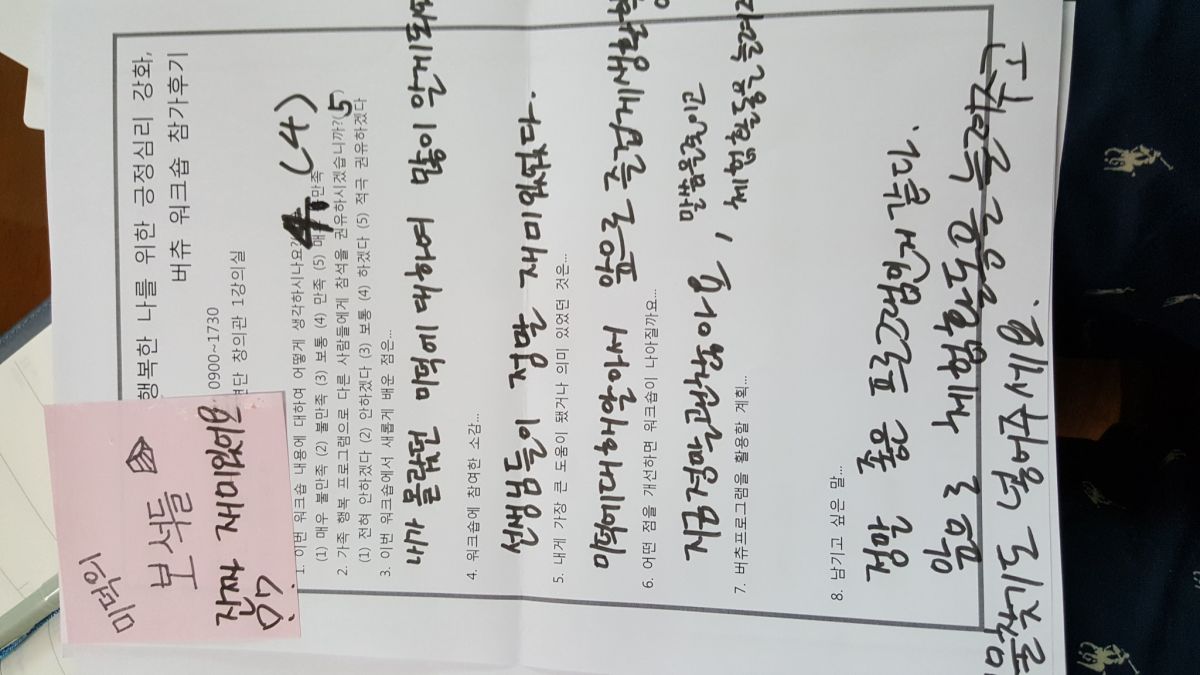 미덕의
보석들
진짜 재미있어요
행복한 나를 위한 긍정심리 강화,
버츄 워크숍 참가후기
0900~1730
창의관 1강의실
1. 이번 워크숍 내용에 대하여 어떻게 생각하시나요? 4. (4)
(1) 매우 불만족 (2) 불만족 (3) 보통 (4) 만족 (5) 매우 만족
2. 가족 행복 프로그램으로 다른 사람들에게 참석을 권유하시겠습니까? (5)
(1) 전혀 안하겠다 (2) 안하겠다 (3) 보통 (4) 하겠다 (5) 적극 권유하겠다
3. 이번 워크숍에서 새롭게 배운 점은...
내가 몰랐던 미덕에 대하여 많이 알게되
4. 워크숍에 참여한 소감...
선생님들이 정말 재미있었다.
5. 내게 가장 큰 도움이 됐거나 의미 있었던 것은...
미덕에대해알아서 앞으로 즐겁게생활
6. 어떤 점을 개선하면 워크숍이 나아질까요...
지금정말괜찮아요, 말씀을줄이고
체험활동을 늘려
7. 버츄프로그램을 활용할 계획...
8. 남기고 싶은 말...
정말 좋은 프로그램인거 같다.
앞으로 체험활동을 늘려주고
물찾기도 넣어주세요.